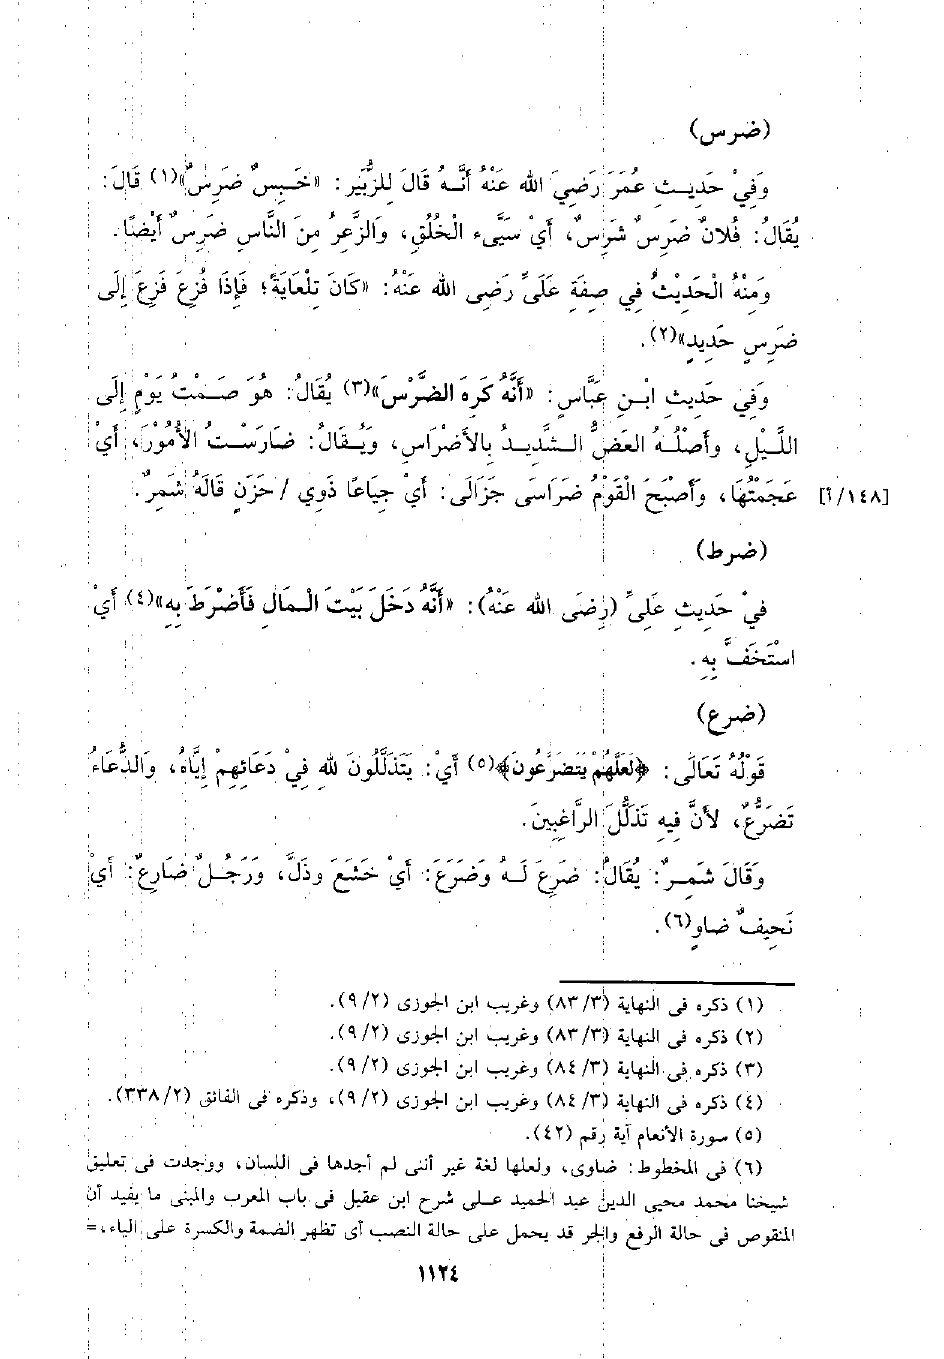 (ضرس)
وَفِيْ حَدِيثِ عُمَرَ رَضِيَ الله عَنْهُ أَنَّهُ قَالَ لِلزُّبَيْرِ: «ضَبِسٌ ضَرِسٌ»(١) قَالَ:
يُقَالُ: فُلَانٌ ضَرِسٌ شَرِسٌ، أَيْ سَيِّىء الْخُلُقِ، وَالزَّعِرُ مِنَ النَّاسِ ضَرِسٌ أَيْضًا.
وَمِنْهُ الْحَدِيْثُ فِي صِفَةِ عَلَىٍّ رَضِى الله عَنْهُ: «كَانَ تِلْعَابَةً؛ فَإِذَا فُزِعَ فَزِعَ إِلَى
ضَرِسٍ حَدِيدٍ»(٢).
وَفِي حَدِيثِ ابْنِ عَبَّاسٍ: «أَنَّهُ كَرِهَ الضَّرْسَ»(٣) يُقَالُ: هُوَ صَمْتُ يَوْمٍ إِلَى
اللَّيْلِ، وأَصْلُهُ العَضُّ الشَّدِيدُ بِالأَضْرَاسِ، وَيُقَالُ: ضَارَسْتُ الأُمُوْرَ، أَيْ
[١٤٨/أ] عَجَمْتُهَا، وَأَصْبَحَ الْقَوْمُ ضَرَاسَى حَزَانَى: أَيْ جِيَاعًا ذَوِي / حَزَنٍ قَالَهُ شَمَرٌ.
(ضرط)
فِيْ حَدِيثِ عَلِىٍّ (رَضِىَ الله عَنْهُ): «أَنَّهُ دَخَلَ بَيْتَ الْمَالِ فَأَضْرَطَ بِهِ»(٤) أَيْ
اسْتَخَفَّ بِهِ.
(ضرع)
قَوْلُهُ تَعَالَى: ﴿لَعَلَّهُمْ يَتَضَرَّعُونَ﴾(٥) أَيْ: يَتَذَلَّلُونَ للهِ فِيْ دَعَائِهِمْ إِيَّاهُ، وَالدُّعَاءُ
تَضَرُّعٌ، لأَنَّ فِيهِ تَذَلُّلَ الرَّاغِبِينَ.
وَقَالَ شَمِرٌ: يُقَالُ: ضَرِعَ لَهُ وَضَرَعَ: أَيْ خَشَعَ وذَلَّ، وَرَجُلٌ ضَارِعٌ: أَيْ
نَحِيفٌ ضاوٍ(٦).
(١) ذكره فى النهاية (٨٣/٣) وغريب ابن الجوزى (٩/٢).
(٢) ذكره فى النهاية (٨٣/٣) وغريب ابن الجوزى (٩/٢).
(٣) ذكره فى النهاية (٨٤/٣) وغريب ابن الجوزى (٩/٢).
(٤) ذكره فى النهاية (٨٤/٣) وغريب ابن الجوزى (٩/٢)، وذكره فى الفائق (٣٣٨/٢).
(٥) سورة الأنعام آية رقم (٤٢).
(٦) فى المخطوط: ضاوى، ولعلها لغة غير أننى لم أجدها فى اللسان، ووجدت فى تعليق
شيخنا محمد محيى الدين عبد الحميد على شرح ابن عقيل فى باب المعرب والمبنى ما يفيد أن
المنقوص فى حالة الرفع والجر قد يحمل على حالة النصب أى تظهر الضمة والكسرة على الياء،=
١١٢٤